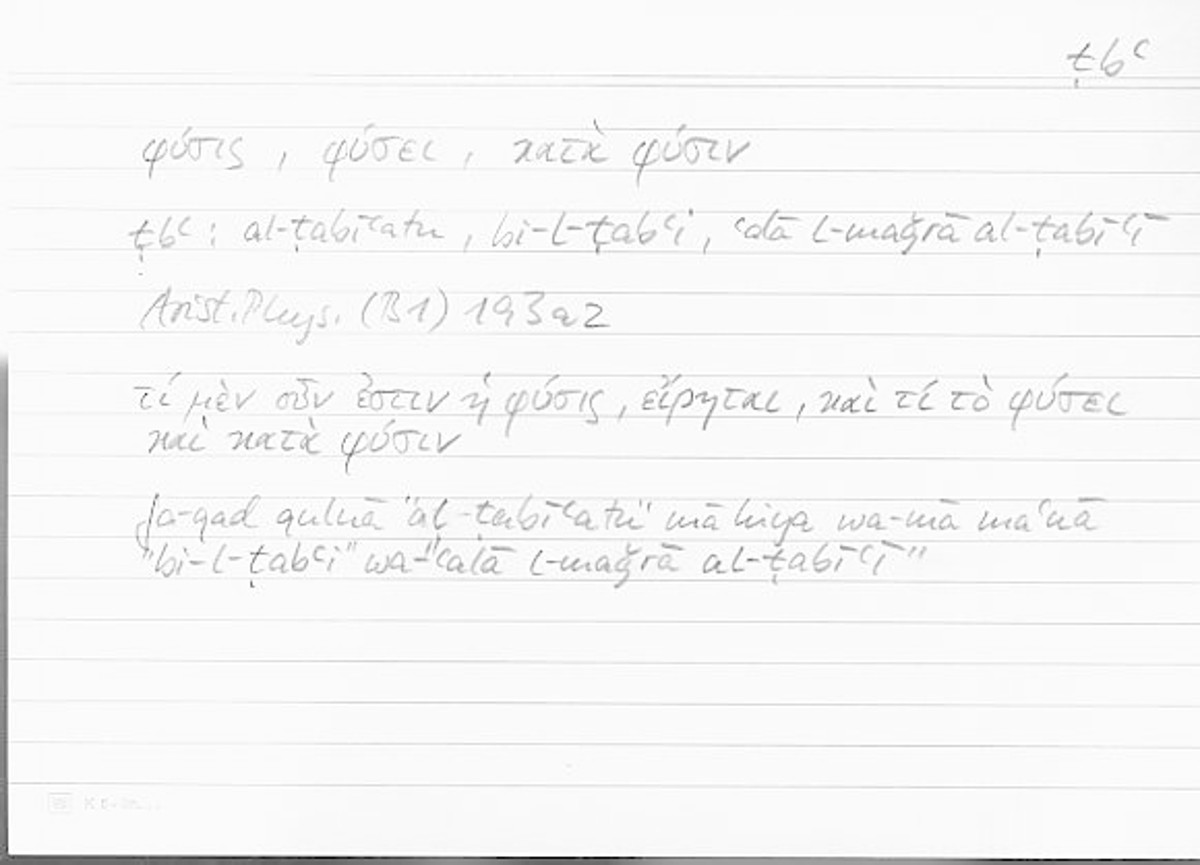 ṭbʿ
φύσις , φύσει , κατὰ φύσιν
ṭbʿ : al-ṭabīʿatu , bi-l-ṭabʿi , ʿalā l-maǧrā al-ṭabīʿī
Arist. Phys. (B1) 193a2
τί μὲν οὖν ἐστιν ἡ φύσις , εἴρηται , καὶ τί τὸ φύσει
καὶ κατὰ φύσιν
fa-qad qulnā "al-ṭabīʿatu" mā hiya wa-mā maʿnā
"bi-l-ṭabʿi" wa-"ʿalā l-maǧrā al-ṭabīʿī"